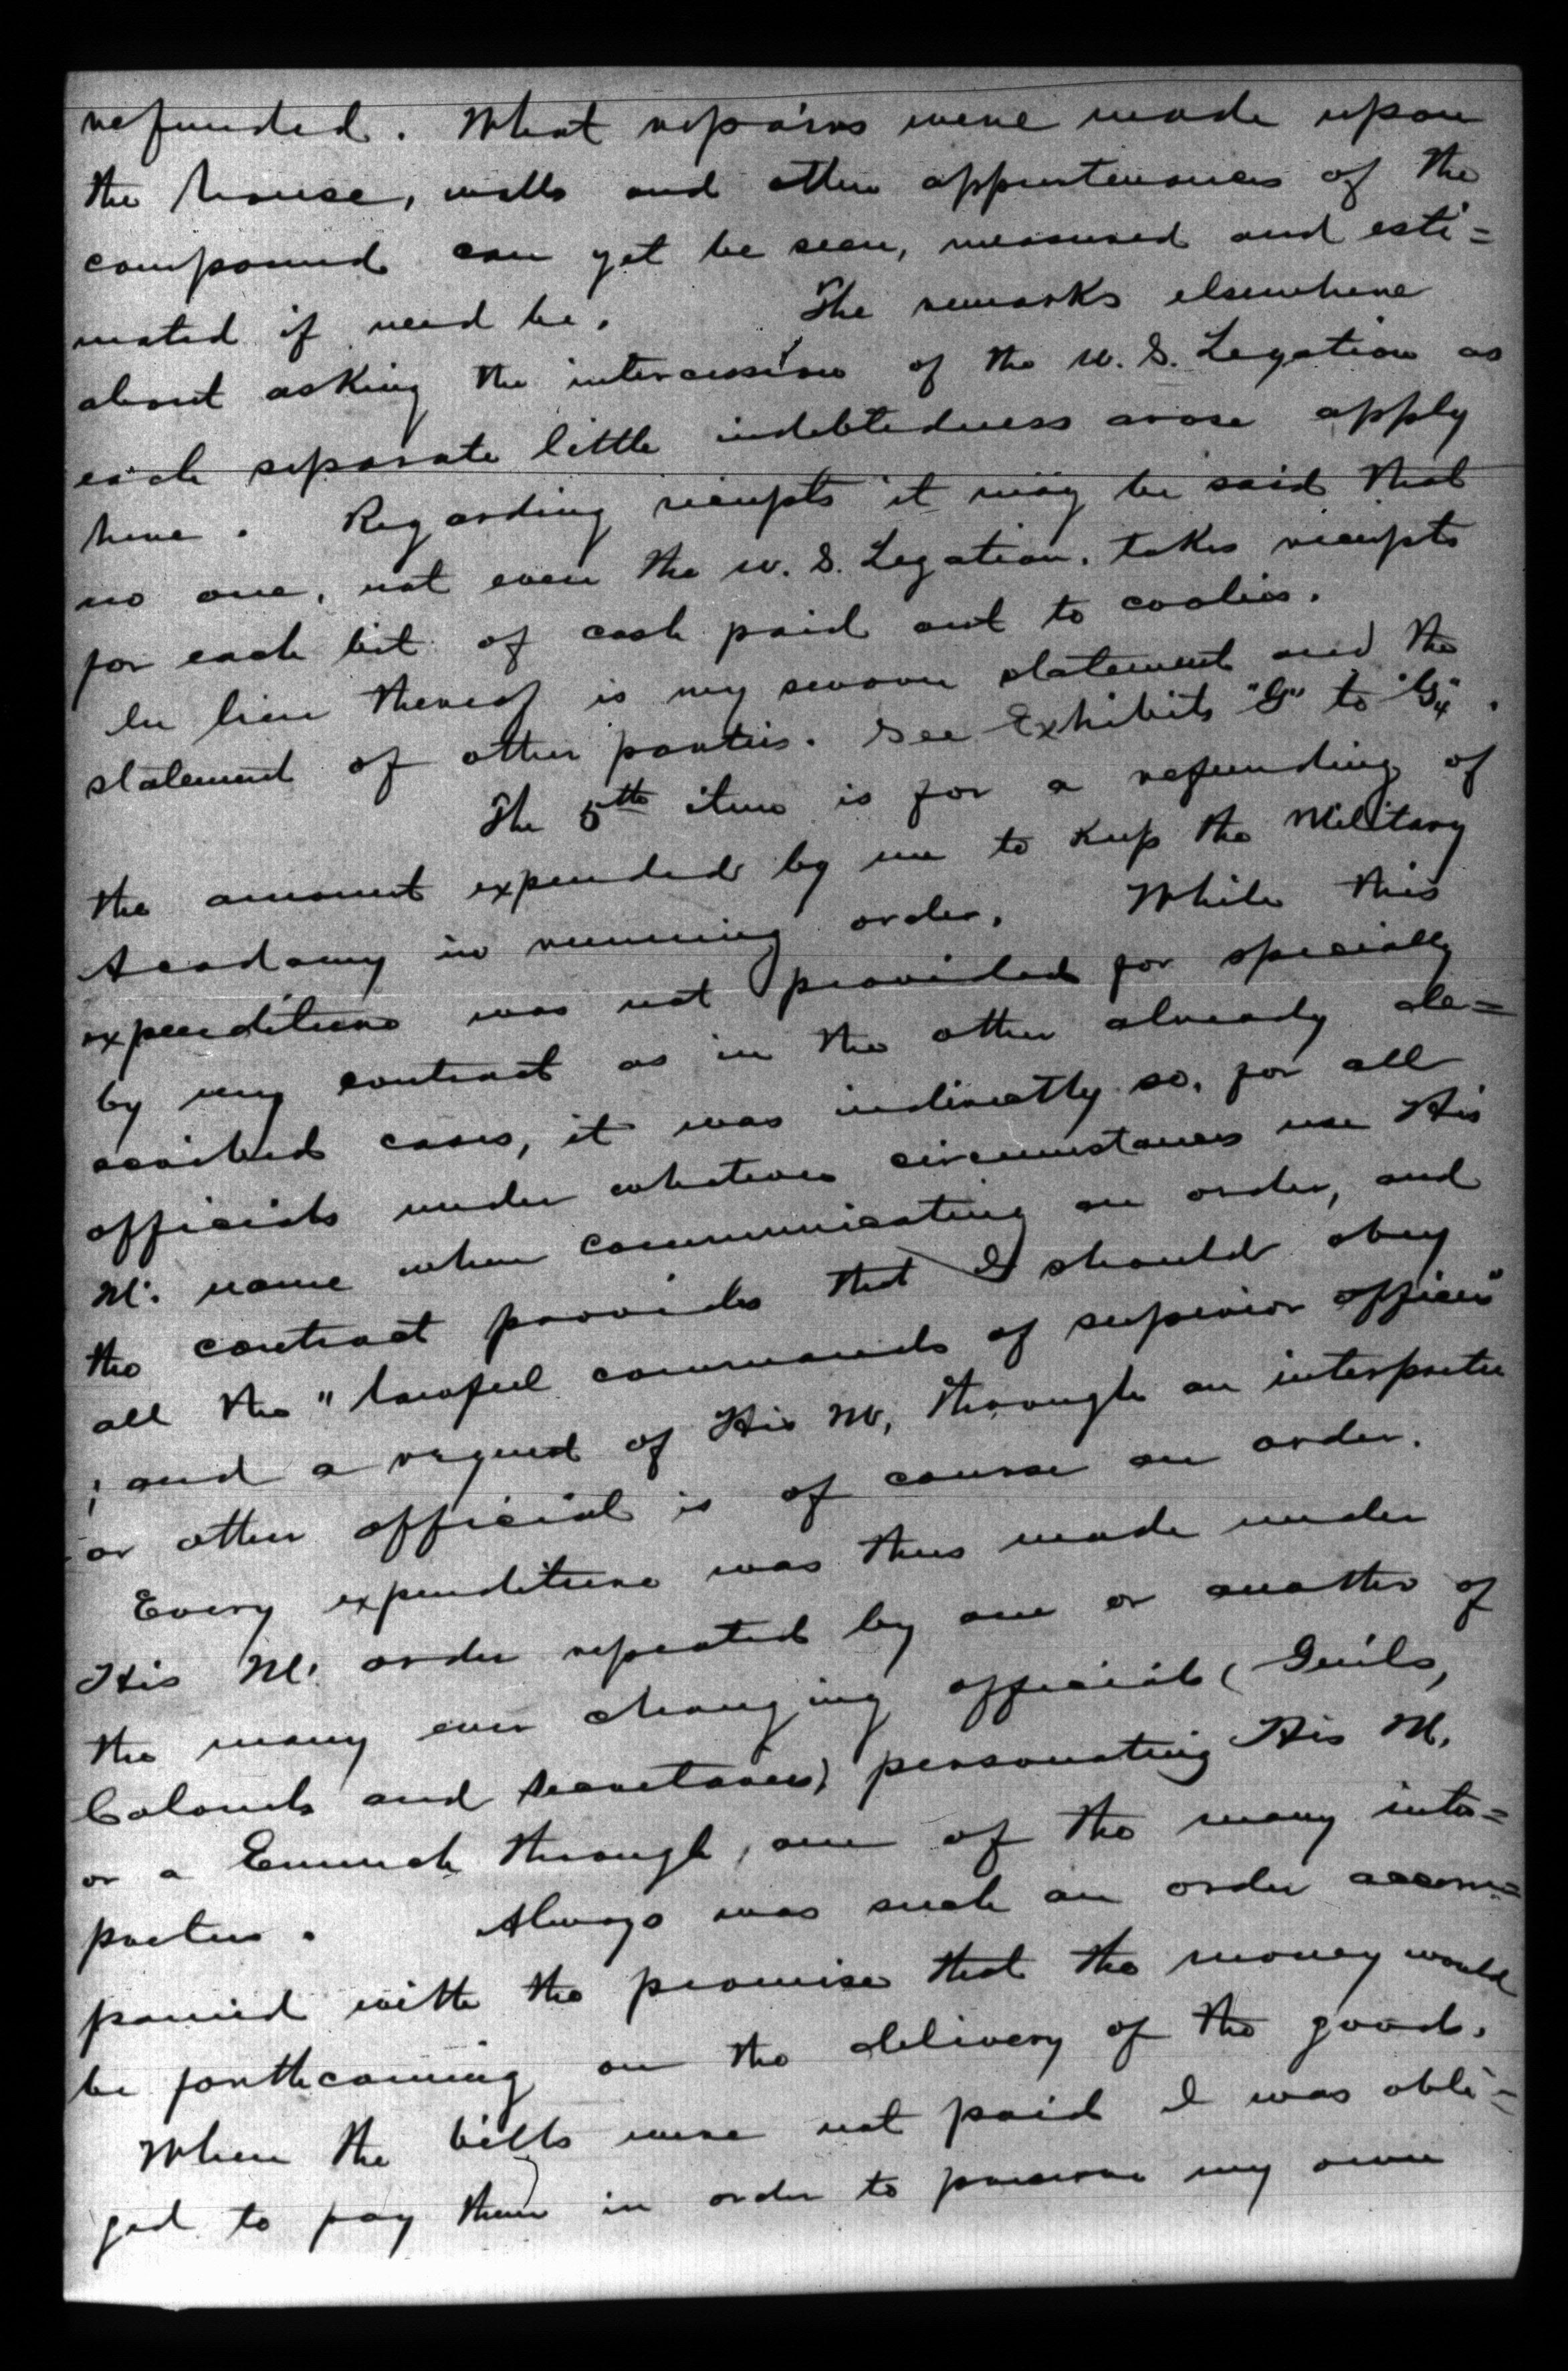 refunded. What repairs were made upon
the house, walls and other appurtenances of the
compound can yet be seen, measured and esti=
mated if need be. The remarks elsewhere
about asking the intercession of the U.S. Legation as
each separate little indebtedness arose apply
here. Regarding reciepts it may be said that
no one, not even the U.S. Legation, takes reciepts
for each bit of cash paid out to coolies.
In lieu thereof is my sworn statement and the
statement of other parties. See Exhibits "G" to "G4".
The 5th item is for a refunding of
the amount expended by me to keep the Military
Academy in running order. While this
expenditure was not provided for specially
by my contract as in the other already de=
scribed cases, it was indirectly so, for all
officials under whatever circumstances use His
M. name when communicating an order, and
the contract provides that I should obey
all the "lawful commands of superior officers"
; and a request of His M, through an interpreter
or other official is of course an order.
Every expenditure was thus made under
His M. order repeated by one or another of
the many ever changing officials (Genls,
Colonels and Secretaries) personating His M.
or a Eunuch through, one of the many inter=
preters. Always was such an order accom=
panied with the promise that the money would
be forthcoming on the delivery of the goods.
When the bills were not paid I was obli=
ged to pay them in order to preserve my own